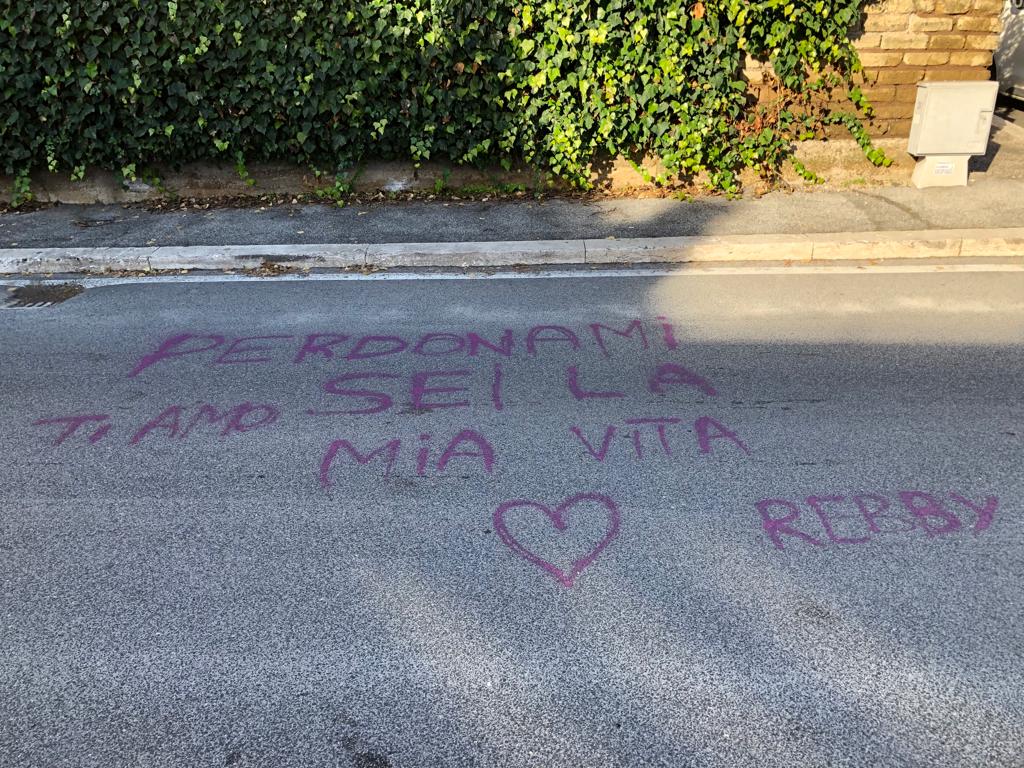 PERDONAMi
SEI LA
Ti AMO
MiA ViTA
REBBY